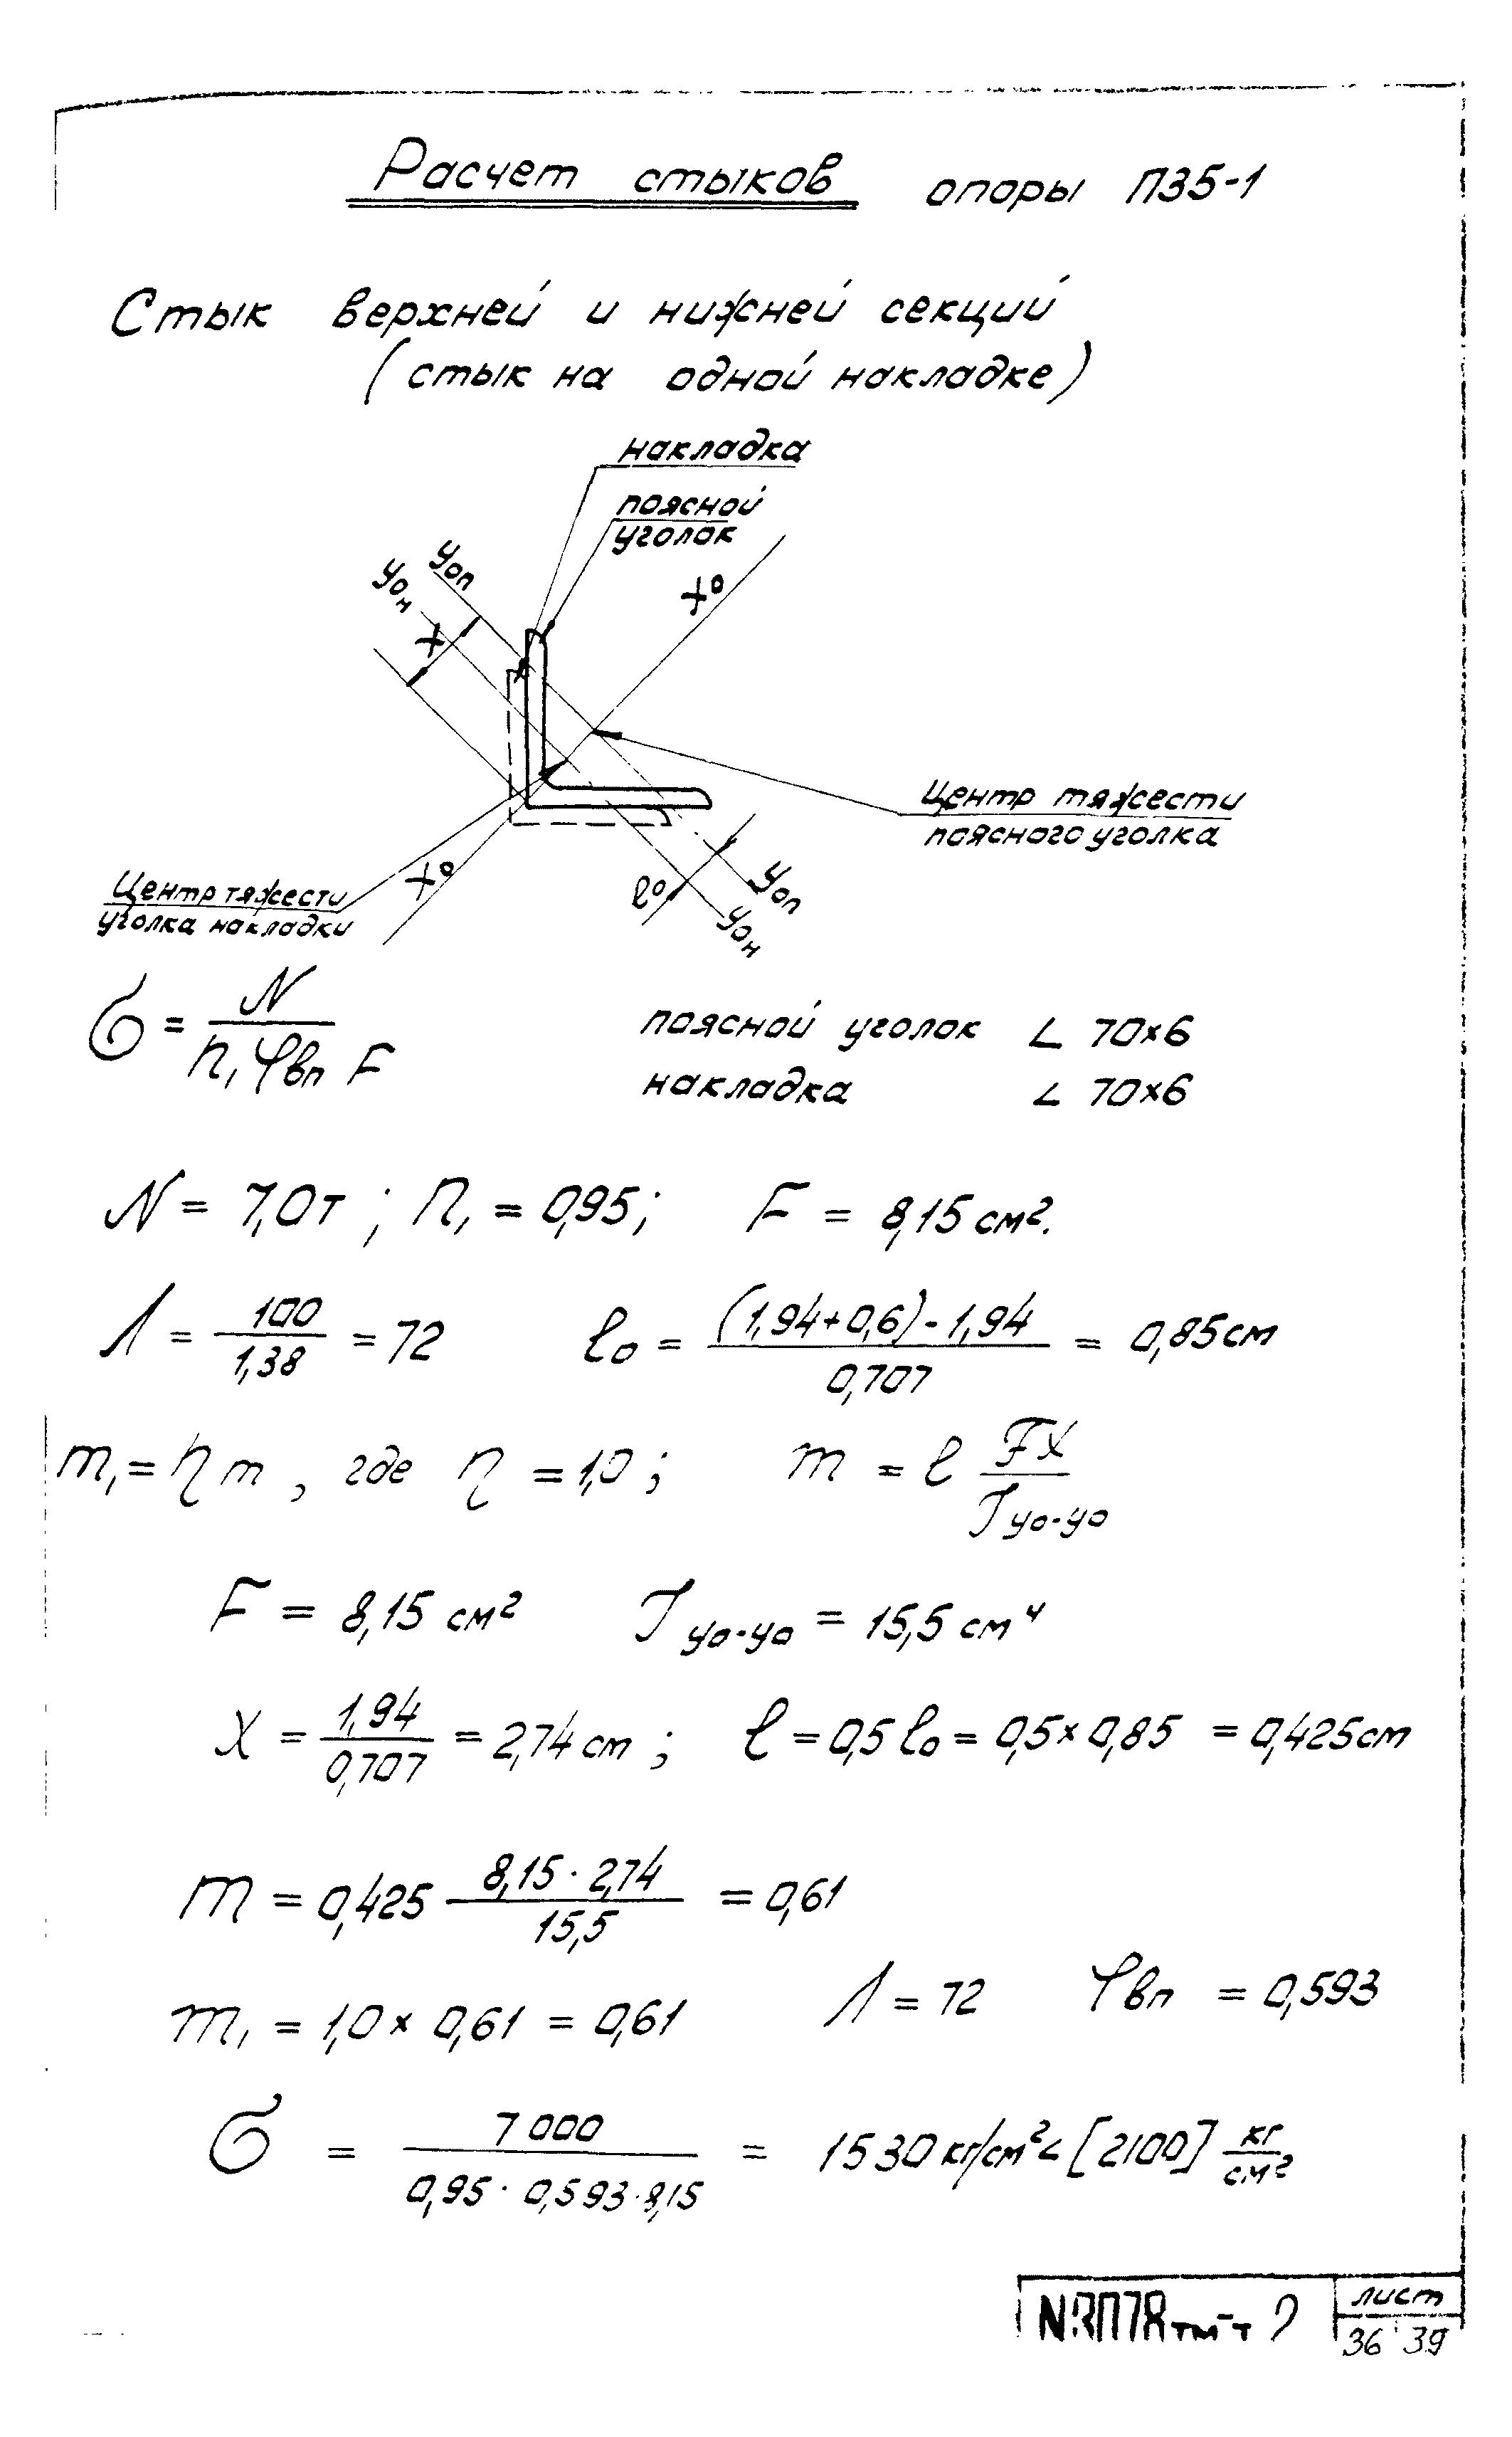 Расчет стыков опоры П35-1
Стык верхней и нижней секций
(стык на одной накладке)
накладка
поясной
уголок
Уоп
Уон
X
Xо
Центр тяжести
поясного уголка
Центр тяжести
уголка накладки
Xо
ℓо
Уоп
Уон
σ = N / (n₁ φвп F)
поясной уголок ∠ 70×6
накладка ∠ 70×6
N = 7,0т ; n₁ = 0,95; F = 8,15 см².
Λ = 100 / 1,38 = 72 ℓ₀ = ((1,94+0,6)-1,94) / 0,707 = 0,85см
m₁ = η m , где η = 1,0 ; m = ℓ FX / Jуо-уо
F = 8,15 см² Jуо-уо = 15,5 см⁴
X = 1,94 / 0,707 = 2,74 cm ; ℓ = 0,5 ℓ₀ = 0,5 × 0,85 = 0,425cm
m = 0,425 (8,15 · 2,74) / 15,5 = 0,61
m₁ = 1,0 × 0,61 = 0,61 Λ = 72 φвп = 0,593
σ = 7000 / (0,95 · 0,593 · 8,15) = 1530 кг/см² < [2100] кг/см²
лист
36 39